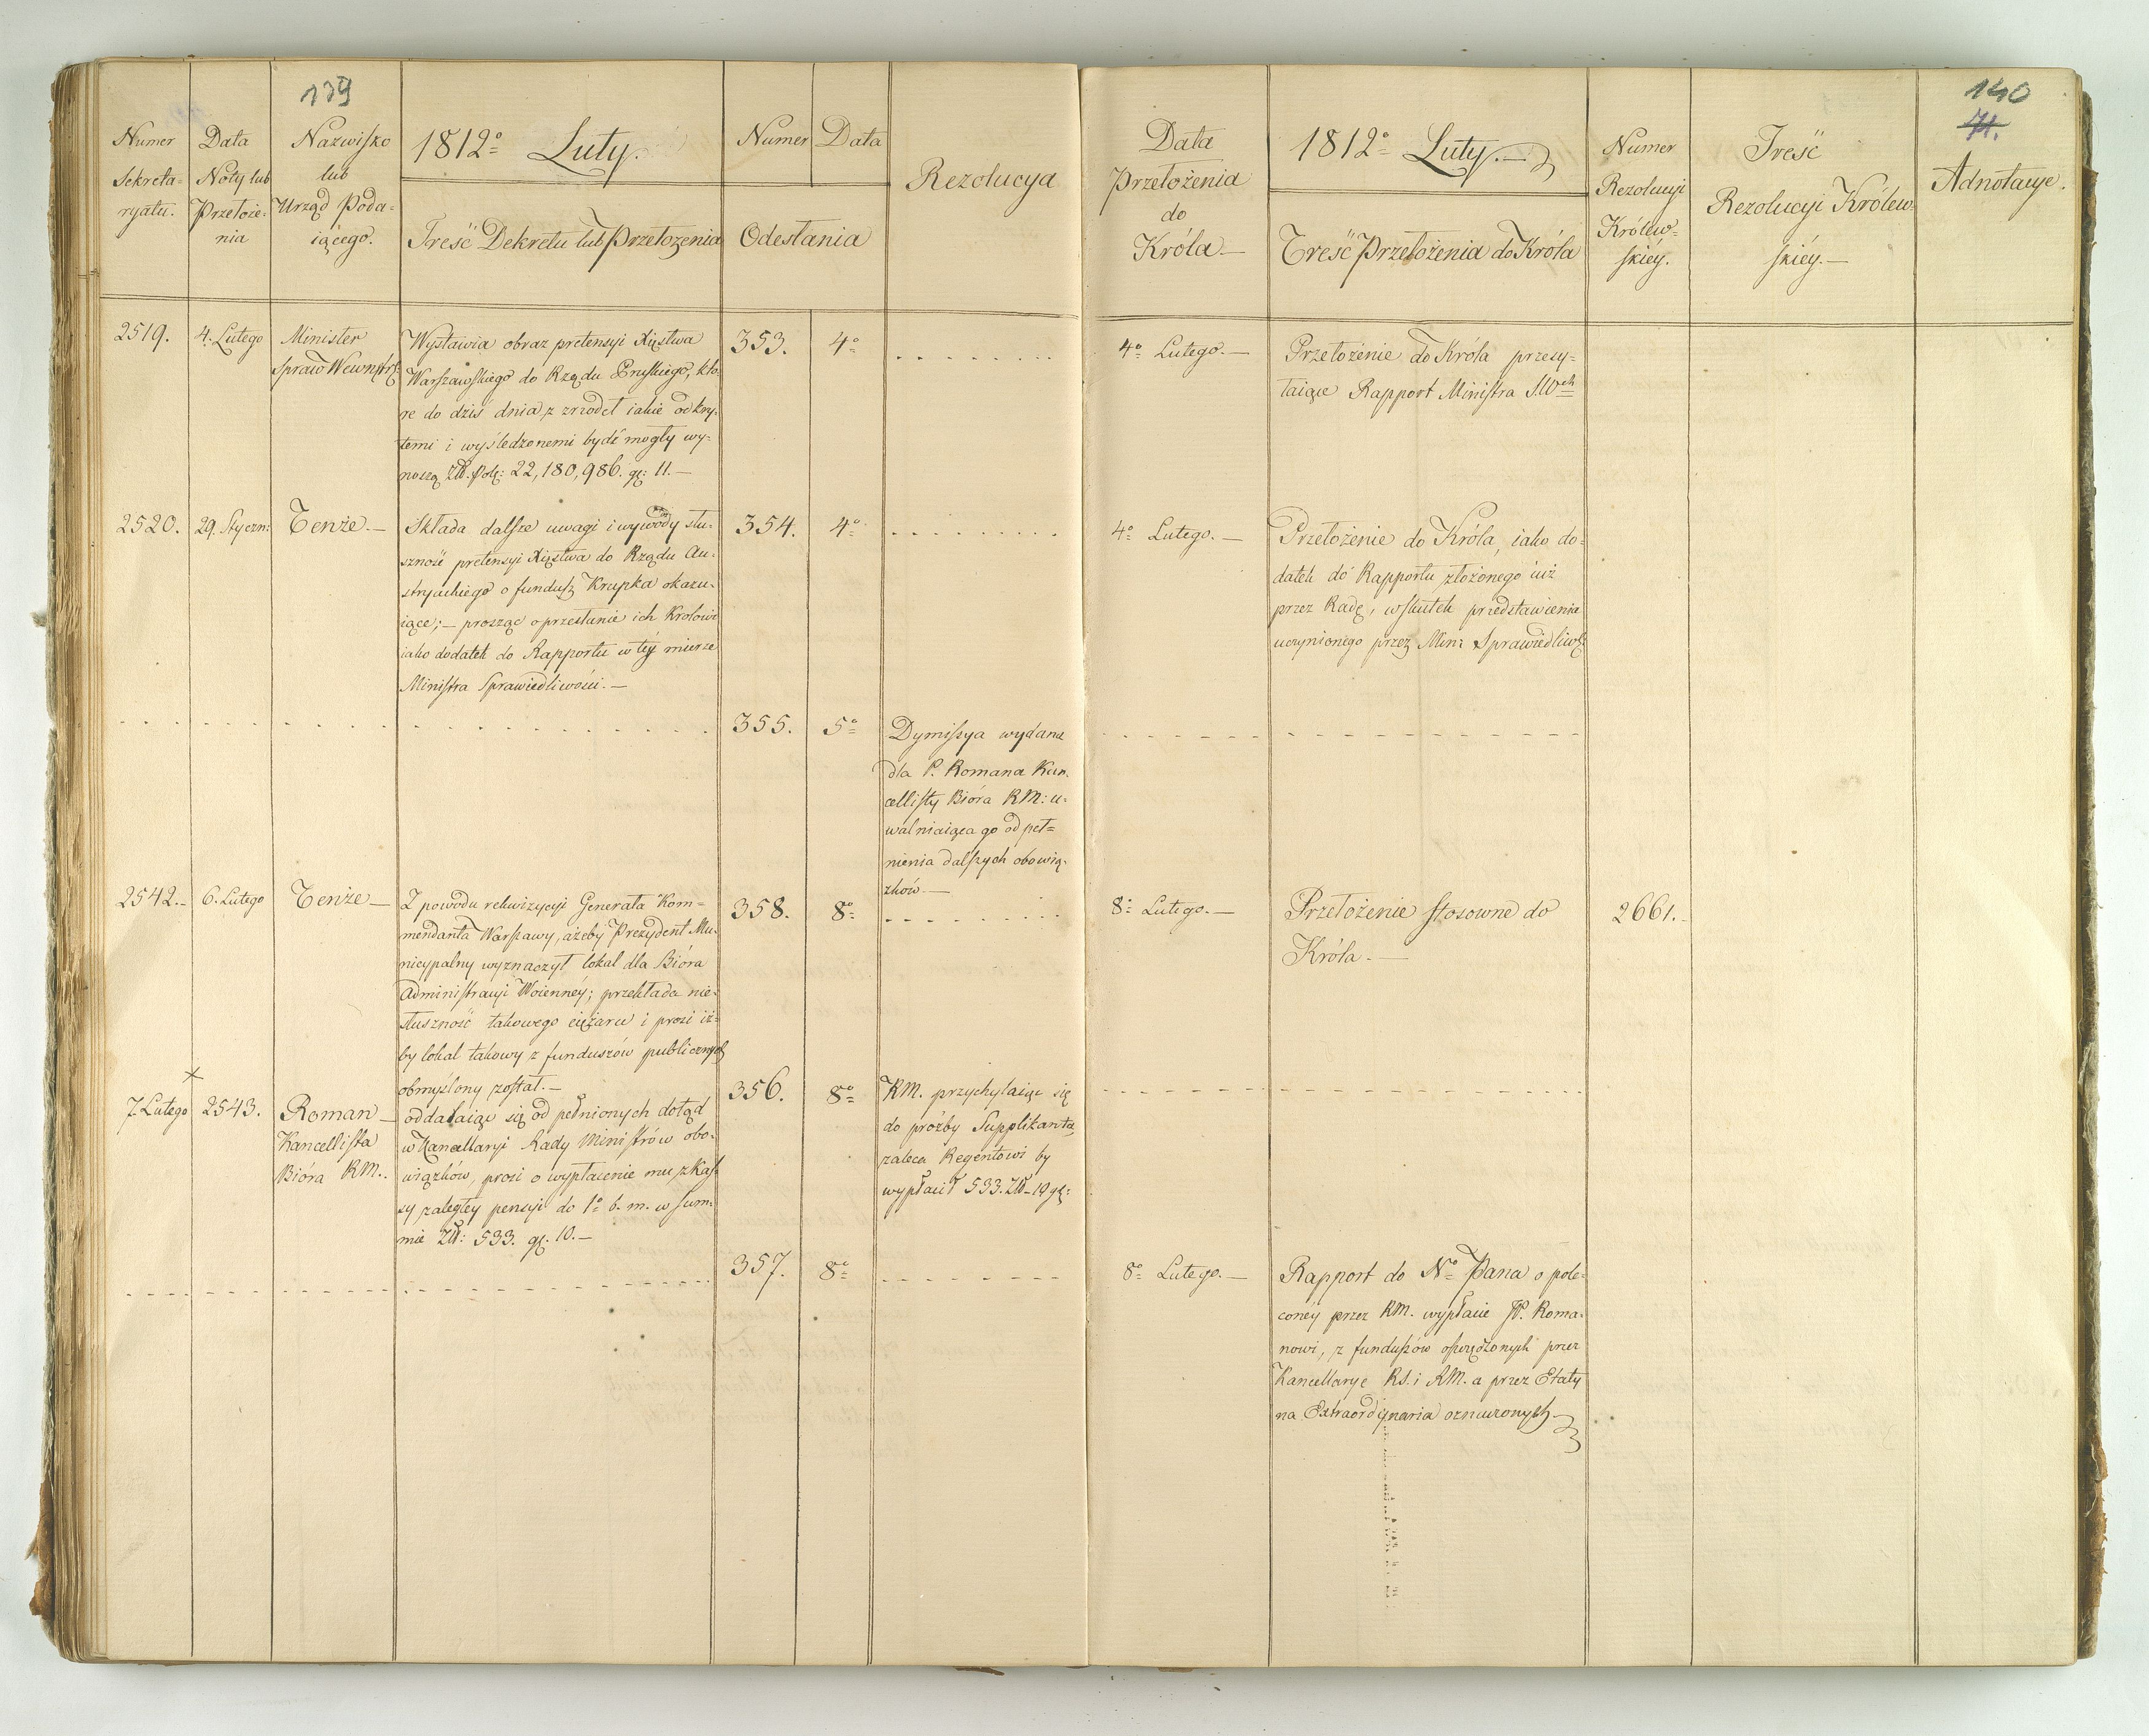 139
Numer
Sekreta=
ryatu.
Data
Noty lub
Przełoże=
nia
Nazwisko
lub
Urząd Poda=
iącego.
1812o Luty.
Treść Dekretu lub Przełożenia
Numer Data
Odesłania
Rezolucya
2519. 4. Lutego
Minister
Spraw Wewnętrz:
Wystawia obraz pretensyi Xięstwa
Warszawskiego do Rządu Pruskiego, któ=
re do dziś dnia, z zrzodeł iakie odkry=
temi i wyśledzonemi bydź mogły wy=
noszą Zł. Pol: 22,180,986. gr: 11.—
353. 4o
2520. 29. Styczn: Tenże.—
Składa dalsze uwagi i wywody słu=
szność pretensyi Xięstwa do Rządu Au=
stryackiego o fundusz Krupka okazu=
iące;— prosząc o przesłanie ich Krolowi
iako dodatek do Rapportu w téy mierze
Ministra Sprawiedliwości.—
354. 4o
355. 5o
Dymissya wydana
dla P. Romana Kan=
cellisty Bióra RM: u=
walniaiąca go od peł=
nienia dalszych obowią=
zków.—
2542.— 6. Lutego Tenże—
Z powodu rekwizycyi Generała Kom=
mendanta Warszawy, ażeby Prezydent Mu=
nicypalny wyznaczył lokal dla Bióra
Administracyi Woienney; przekłada nie=
słuszność takowego ciężaru i prosi iż=
by lokal takowy z funduszów publicznych
obmyślony został.—
358. 8o
×
7. Lutego 2543. Roman—
Kancellista
Bióra RM.
oddalaiąc się od pełnionych dotąd
w Kancellaryi Rady Ministrów obo=
wiązków, prosi o wypłacenie mu z Kas=
sy zaległey pensyi do 1o b. m. w sum=
mie Zł: 533. gr. 10.—
356. 8o
RM. przychylaiąc się
do prośby Supplikanta,
zaleca Regentowi by
wypłacił 533. Zł— 10 gr:
357. 8o
140
71.
Data
Przełożenia
do
Króla.—
1812o Luty.—
Treść Przełożenia do Króla
Numer
Rezolucyi
Królew=
skiéy.
Treść
Rezolucyi Królew=
skiéy.—
Adnotacye.
4o Lutego.—
Przełożenie do Króla przesy=
łaiące Rapport Ministra S.Wch
4o Lutego.—
Przełożenie do Króla, iako do=
datek do Rapportu złożonego iuż
przez Radę, w skutek przedstawienia
uczynionego przez Min: Sprawiedliwś:
8o Lutego.—
Przełożenie stosowne do
Króla.—
2661.
8o Lutego.—
Rapport do No Pana o pole=
conéy przez RM. wypłacie JP. Roma=
nowi, z funduszów oszczędzonych przez
Kancellarye RS. i RM. a przez Etaty
na Extraordynaria oznaczonych.—